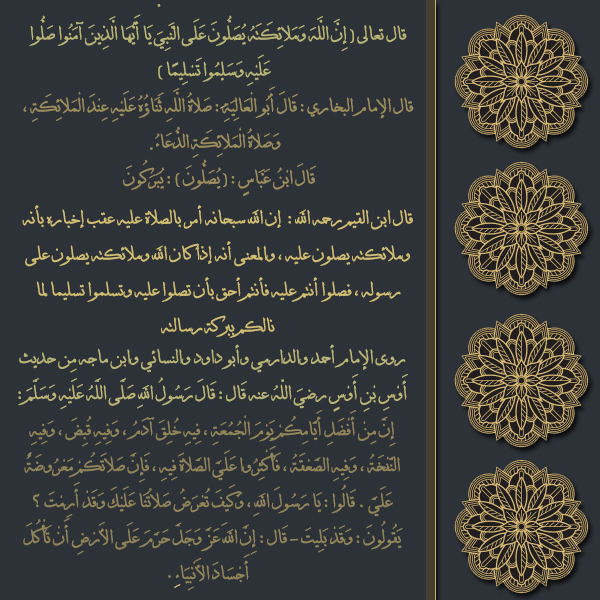 قال تعالى ( إِنَّ اللَّهَ وَمَلَائِكَتَهُ يُصَلُّونَ عَلَى النَّبِيِّ يَا أَيُّهَا الَّذِينَ آمَنُوا صَلُّوا
عَلَيْهِ وَسَلِّمُوا تَسْلِيمًا )
قال الإمام البخاري : قَالَ أَبُو الْعَالِيَةِ : صَلَاةُ اللَّهِ ثَنَاؤُهُ عَلَيْهِ عِنْدَ الْمَلَائِكَةِ ،
وَصَلَاةُ الْمَلَائِكَةِ الدُّعَاءُ .
قَالَ ابْنُ عَبَّاسٍ : ( يُصَلُّونَ ) : يُبَرِّكُونَ
قال ابن القيم رحمه الله : إن الله سبحانه أمر بالصلاة عليه عقب إخباره بأنه
وملائكته يصلون عليه ، والمعنى أنه إذا كان الله وملائكته يصلون على
رسوله ، فصلوا أنتم عليه فأنتم أحق بأن تصلوا عليه وتسلموا تسليما لما
نالكم ببركة رسالته
روى الإمام أحمد والدارمي وأبو داود والنسائي وابن ماجه مِن حديث
أَوْسِ بْنِ أَوْسٍ رضيَ اللَّهُ عنه قال : قَالَ رَسُولُ اللهِ صَلَّى اللَّهُ عَلَيْهِ وَسَلَّمَ :
إِنَّ مِنْ أَفْضَلِ أَيَّامِكُمْ يَوْمَ الْجُمُعَةِ ، فِيهِ خُلِقَ آدَمُ ، وَفِيهِ قُبِضَ ، وَفِيهِ
النَّفْخَةُ ، وَفِيهِ الصَّعْقَةُ ، فَأَكْثِرُوا عَلَيَّ الصَّلاَةَ فِيهِ ، فَإِنَّ صَلاَتَكُمْ مَعْرُوضَةٌ
عَلَيَّ . قَالُوا : يَا رَسُولَ اللهِ ، وَكَيْفَ تُعْرَضُ صَلاَتُنَا عَلَيْكَ وَقَدْ أَرِمْتَ ؟
يَقُولُونَ : وَقَدْ بَلِيتَ – قَال : إِنَّ اللهَ عَزَّ وَجَلَّ حَرَّمَ عَلَى الأَرْضِ أَنْ تَأْكُلَ
أَجْسَادَ الأَنْبِيَاءِ .